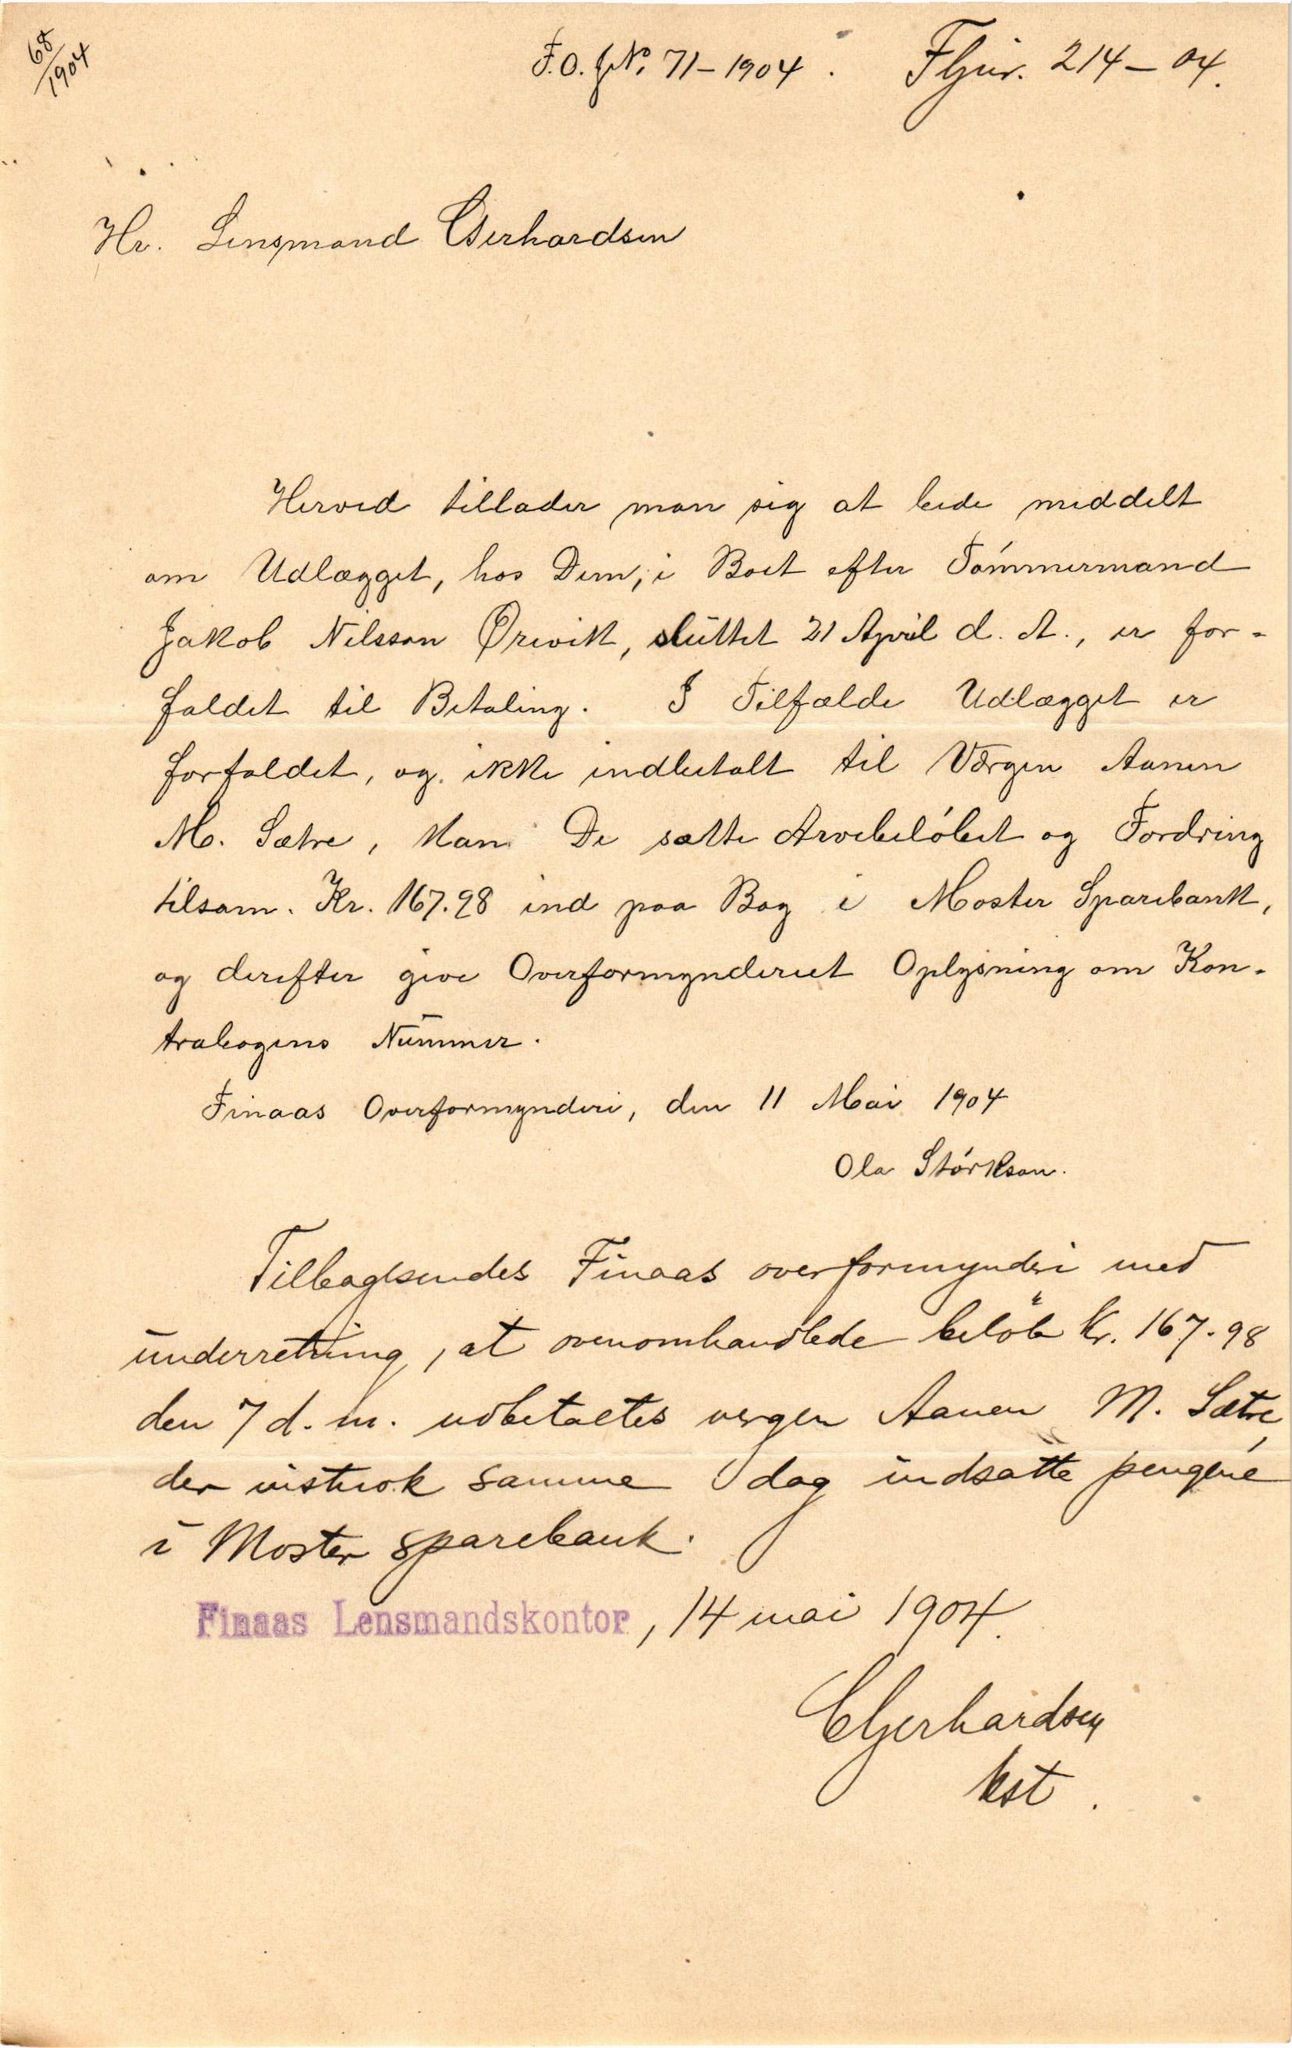 68/1904
F.O.JNo. 71-1904. FJour. 214-04.
Hr. Lensmand Gerhardsen
Herved tillader man sig at bede meddelt
om Udlægget, hos Dem, i Boet efter Tømmermand
Jakob Nilsson Ørevik, sluttet 21 April d. A., er for-
faldet til Betaling. I Tilfælde Udlægget er
forfaldet, og ikke indbetalt til Værgen Aanen
M. Sætre, kan De sætte Arvebeløbet og Fordring
tilsam. Kr. 167.98 ind paa Bog i Moster Sparebank,
og derefter give Overformynderiet Oplysning om Kon-
trabogens Nummer.
Finaas Overformynderi, den 11 Mai 1904
Ola Størkson.
Tilbagesendes Finaas overformynderi med
underretning, at ovenomhandlede beløb kr. 167.98
den 7 d. m. udbetaltes vergen Aanen M. Sætre,
der vistnok samme dag indsatte pengene
i Moster sparebank.
Finaas Lensmandskontor, 14 mai 1904.
EGerhardsen
kst.